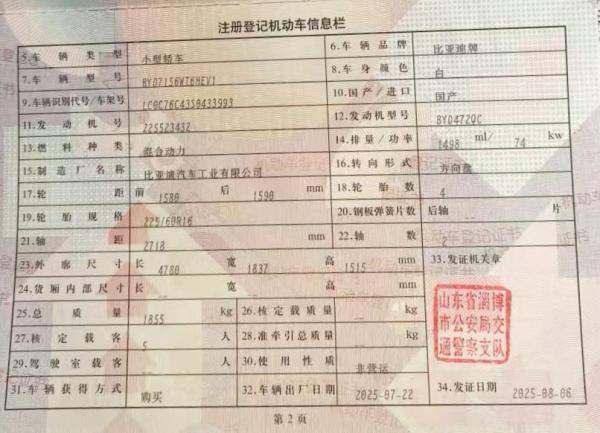 注册登记机动车信息栏
5.车辆类型 小型轿车 6.车辆品牌 比亚迪牌
7.车辆型号 BYD7156WT6HEV1 8.车身颜色 白
9.车辆识别代号/车架号 LC0C76C43S0433993 10.国产/进口 国产
11.发动机号 225523432 12.发动机型号 BYD472QC
13.燃料种类 混合动力 14.排量/功率 1498 ml/ 74 kw
15.制造厂名称 比亚迪汽车工业有限公司 16.转向形式 方向盘
17.轮距 前 1580 后 1590 mm 18.轮胎数 4
19.轮胎规格 225/60R16 20.钢板弹簧片数 后轴 片
21.轴距 2718 mm 22.轴数 2
23.外廓尺寸 长 4780 宽 1837 高 1515 mm 33.发证机关章
24.货厢内部尺寸 长 宽 高 mm
25.总质量 1855 kg 26.核定载质量 kg
27.核定载客 5 人 28.准牵引总质量 kg
29.驾驶室载客 人 30.使用性质 非营运
31.车辆获得方式 购买 32.车辆出厂日期 2025-07-22 34.发证日期 2025-08-06
山东省淄博
市公安局交
通警察支队
第2页